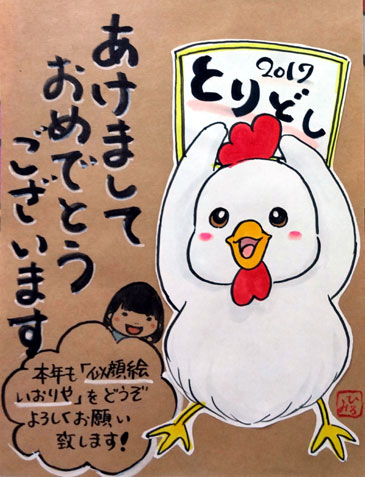 あけまして
おめでとう
ございます
2017
とりどし
本年も「似顔絵
いおりや」をどうぞ
よろしくお願い
致します!